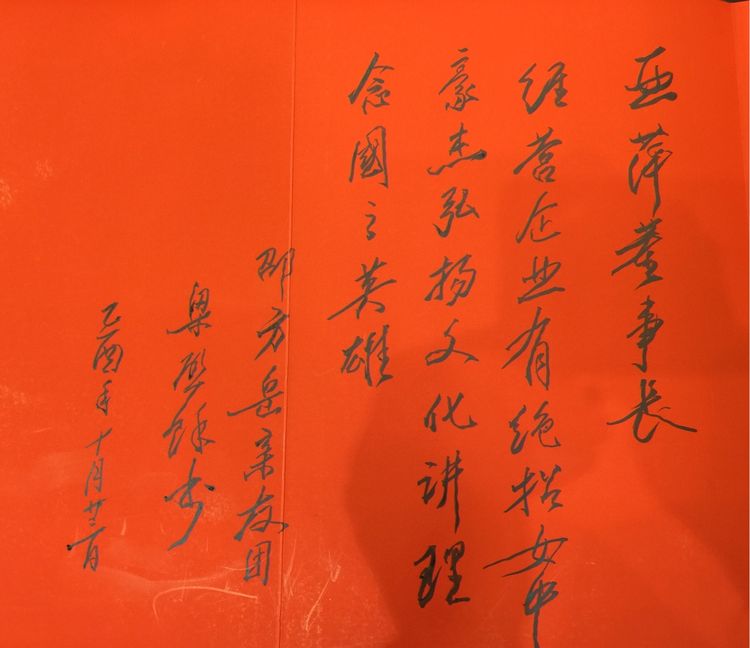 亚萍董事长
经营企业有绝招女中
豪杰弘扬文化讲理
念國之英雄
邵方岳亲友团
梁书
乙酉年十月廿二日